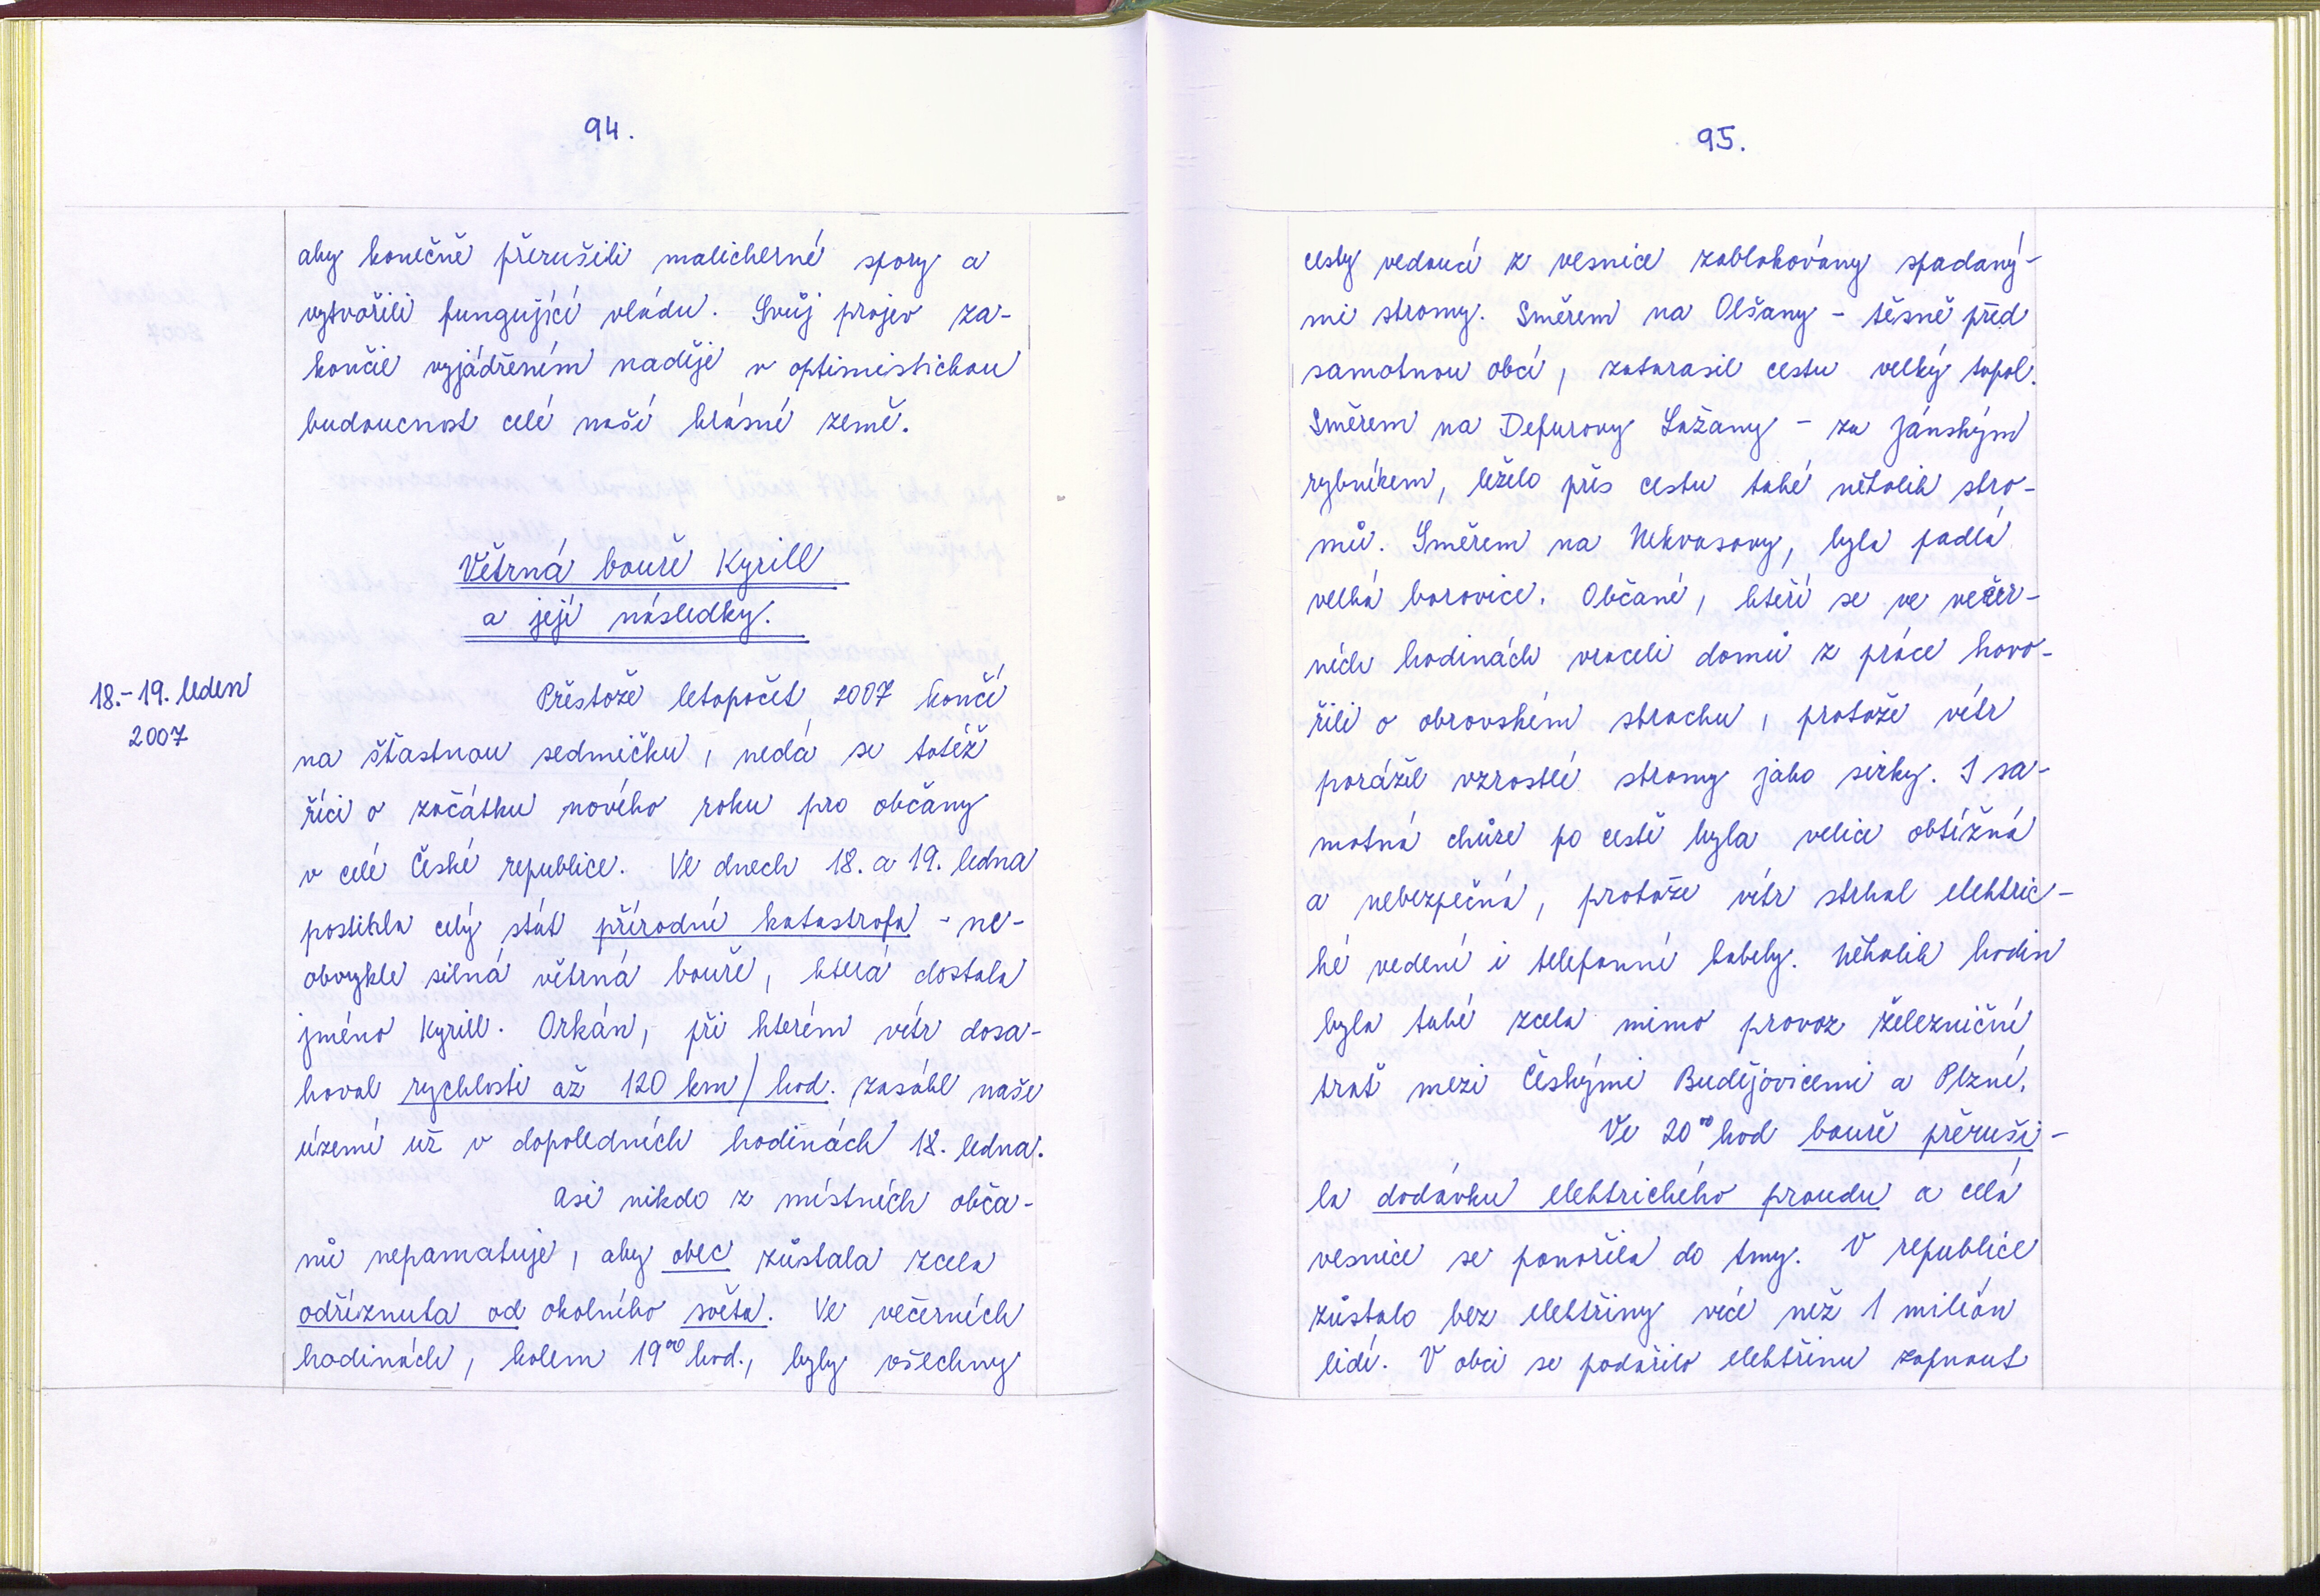 94.
aby konečně přerušili malicherné spory a
vytvořili fungující vládu. Svůj projev za-
končil vyjádřením naděje v optimistickou
budoucnost celé naší krásné země.
Větrná bouře Kyrill
a její následky.
18.-19. leden
2007
Přestože letopočet 2007 končí
na šťastnou sedmičku, nedá se totéž
říci o začátku nového roku pro občany
v celé České republice. Ve dnech 18. a 19. ledna
postihla celý stát přírodní katastrofa - ne-
obvykle silná větrná bouře, která dostala
jméno Kyrill. Orkán, při kterém vítr dosa-
hoval rychlosti až 120 km/hod. zasáhl naše
území už v dopoledních hodinách 18. ledna.
Asi nikdo z místních obča-
nů nepamatuje, aby obec zůstala zcela
odříznuta od okolního světa. Ve večerních
hodinách, kolem 19⁰⁰ hod., byly všechny
95.
cesty vedoucí z vesnice zablokovány spadaný-
mi stromy. Směrem na Olšany - těsně před
samotnou obcí, zatarasil cestu velký topol.
Směrem na Defurovy Lažany - za Jánským
rybníkem, leželo přes cestu také několik stro-
mů. Směrem na Nekvasovy, byla padlá
velká borovice. Občané, kteří se ve večer-
ních hodinách vraceli domů z práce hovo-
řili o obrovském strachu, protože vítr
porážel vzrostlé stromy jako sirky. I sa-
motná chůze po cestě byla velice obtížná
a nebezpečná, protože vítr strhal elektric-
ké vedení i telefonní kabely. Několik hodin
byla také zcela mimo provoz železniční
trať mezi Českými Budějovicemi a Plzní.
Ve 20⁰⁰ hod bouře přeruši-
la dodávku elektrického proudu a celá
vesnice se ponořila do tmy. V republice
zůstalo bez elektřiny více než 1 milión
lidí. V obci se podařilo elektřinu zapnout